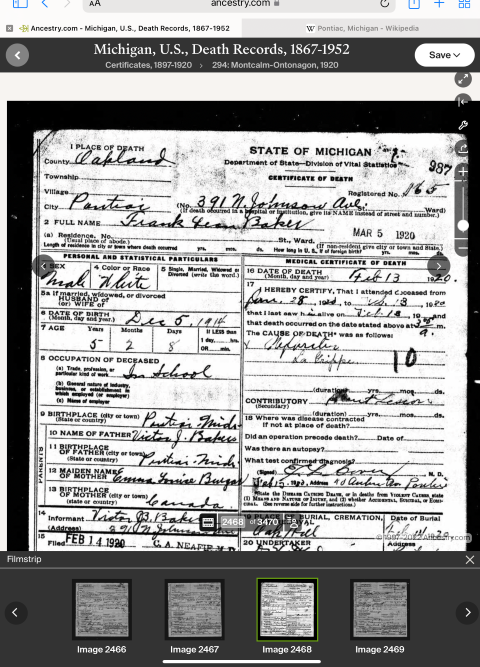 AA
ancestry.com
Ancestry.com - Michigan, U.S., Death Records, 1867-1952
Pontiac, Michigan - Wikipedia
Michigan, U.S., Death Records, 1867-1952
Certificates, 1897-1920 › 294: Montcalm-Ontonagon, 1920
Save
1 PLACE OF DEATH
County Oakland
Township
Village
City Pontiac
STATE OF MICHIGAN
Department of State—Division of Vital Statistics
CERTIFICATE OF DEATH
387
Registered No. 165
(No. 391 N. Johnson Ave. Ward)
(If death occurred in a hospital or institution, give its NAME instead of street and number.)
2 FULL NAME Frank Baker
MAR 5 1920
(a) Residence, No. St., Ward.
(Usual place of abode.) (If non-resident give city or town and State.)
Length of residence in city or town where death occurred yrs. mos. ds. How long in U.S., if of foreign birth?
PERSONAL AND STATISTICAL PARTICULARS
3 SEX Male
4 Color or Race White
5 Single, Married, Widowed or Divorced (write the word.)
5a If married, widowed, or divorced
HUSBAND of
(or) WIFE of
6 DATE OF BIRTH
(Month, day and year.) Dec 5, 1914
7 AGE Years Months Days If LESS than
1 day, hrs.
OR min.
5 2 8
8 OCCUPATION OF DECEASED
(a) Trade, profession, or
particular kind of work In School
(b) General nature of industry,
business, or establishment in
which employed (or employer)
(c) Name of employer
9 BIRTHPLACE (city or town)
(state or country) Pontiac Mich
PARENTS
10 NAME OF FATHER Victor J. Baker
11 BIRTHPLACE
OF FATHER (city or town)
(state or country) Pontiac Mich.
12 MAIDEN NAME
OF MOTHER Emma Louise
13 BIRTHPLACE
OF MOTHER (city or town)
(state or country) Canada
14
Informant Victor B. Baker
(Address)
15
Filed FEB 14 1920
MEDICAL CERTIFICATE OF DEATH
16 DATE OF DEATH
(Month, day and year) Feb 13 1920.
17
I HEREBY CERTIFY, That I attended deceased from
Jan. 28, 1920, to 13, 1920
that I last saw h alive on Feb. 13 19 and
that death occurred on the date stated above at m.
The CAUSE OF DEATH* was as follows:
La Grippe
10
(duration) yrs. mos. ds.
CONTRIBUTORY
(Secondary)
(duration) yrs. mos. ds.
18 Where was disease contracted
if not at place of death?
Did an operation precede death? Date of
Was there an autopsy?
What test confirmed diagnosis?
(Signed) M. D.
Address Pontiac
*State the DISEASE CAUSING DEATH, or in deaths from VIOLENT CAUSES, state
(1) MEANS AND NATURE OF INJURY, and (2) whether ACCIDENTAL, SUICIDAL, or HOMICIDAL.
(See reverse side for further instructions.)
BURIAL, CREMATION, Date of Burial
Oak Hill
20 UNDERTAKER Address
2468 of 3470
Filmstrip
Image 2466
Image 2467
Image 2468
Image 2469